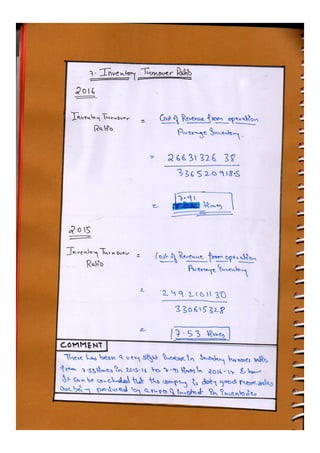 7. Inventory Turnover Ratio
2016
Inventory Turnover = Cost of Revenue from operation
Ratio Average Inventory.
= 26631326 38
3365209185
= 7.91 times
2015
Inventory Turnover = Cost of Revenue from operation
Ratio Average Inventory
= 2492101130
330615328
= 7.53 times
COMMENT
There has been a very slight increase in Inventory turnover ratio
from 7.53 times in 2015-16 to 7.91 times in 2016-17
It can be concluded that the company is doing good
are being produced by a rupee of Invested in inventories